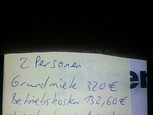 2 Personen
Grundmiete 320€
Betriebskosten 132,60€